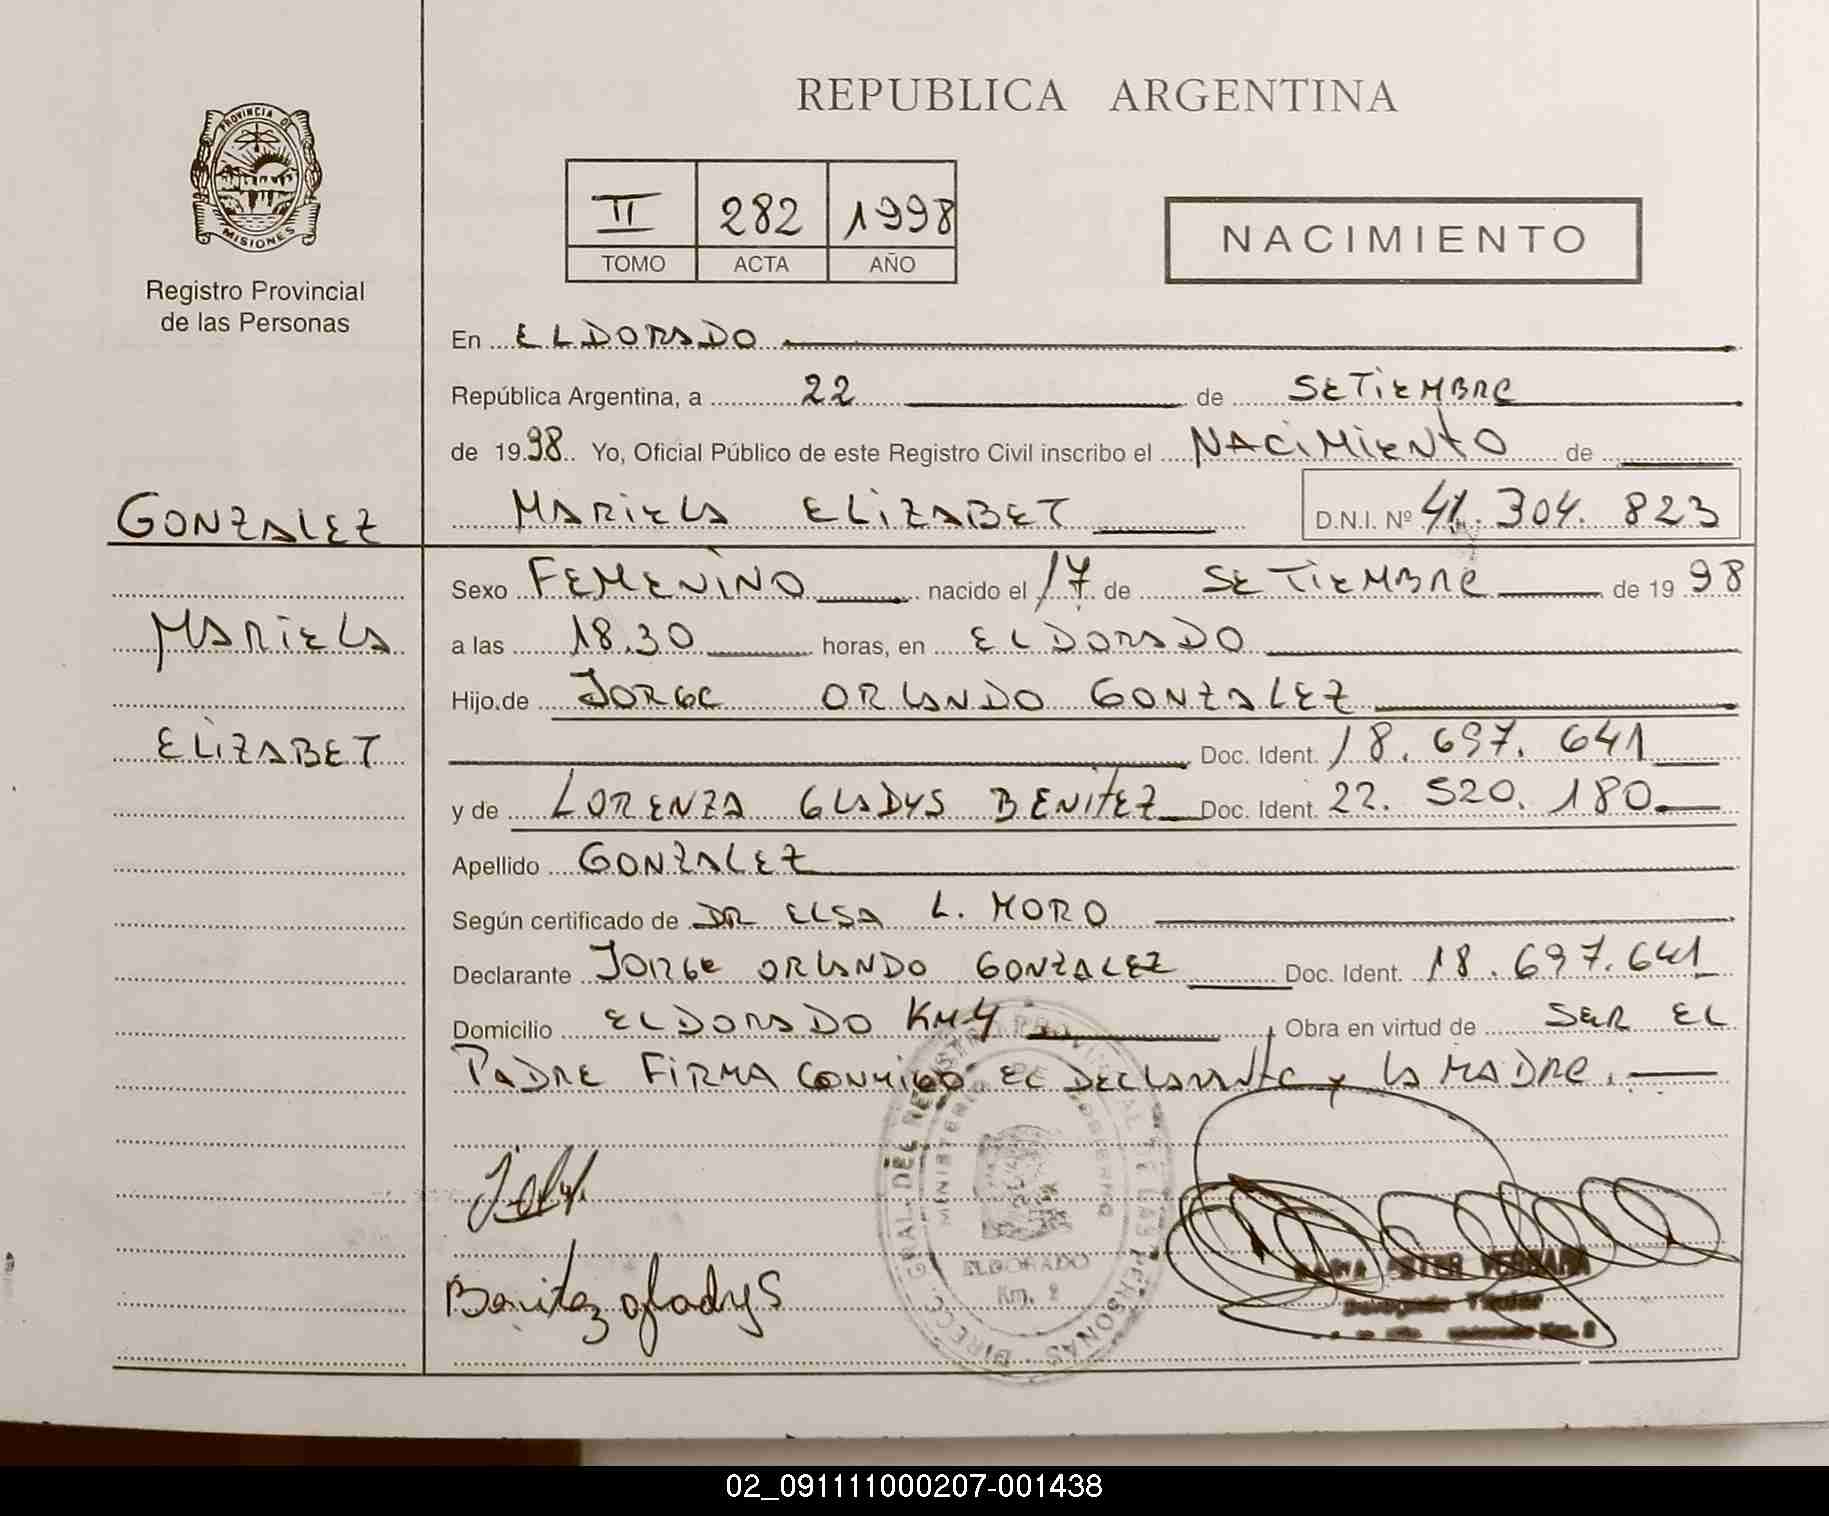 PROVINCIA DE
MISIONES
Registro Provincial
de las Personas
REPUBLICA ARGENTINA
II 282 1998
TOMO ACTA AÑO
NACIMIENTO
En ELDORADO
República Argentina, a 22 de SETIEMBRE
de 1998 Yo, Oficial Público de este Registro Civil inscribo el NACIMIENTO de
GONZALEZ
MARIELA ELIZABET D.N.I. Nº 41.304.823
Sexo FEMENINO nacido el 17 de SETIEMBRE de 1998
MARIELA
a las 18.30 horas, en ELDORADO
Hijo de JORGE ORLANDO GONZALEZ
ELIZABET
Doc. Ident. 18.697.641
y de LORENZA GLADYS BENITEZ Doc. Ident. 22.520.180
Apellido GONZALEZ
Según certificado de DR ELSA L. MORO
Declarante JORGE ORLANDO GONZALEZ Doc. Ident. 18.697.641
Domicilio ELDORADO KM 4 Obra en virtud de SER EL
PADRE FIRMA CONMIGO EL DECLARANTE Y LA MADRE.
DIRECC. GRAL. DEL REGISTRO PROVINCIAL DE LAS PERSONAS
MINISTERIO DE GOBIERNO
ELDORADO
Km. 2
Benitez gladys
Delegado Titular
02_091111000207-001438